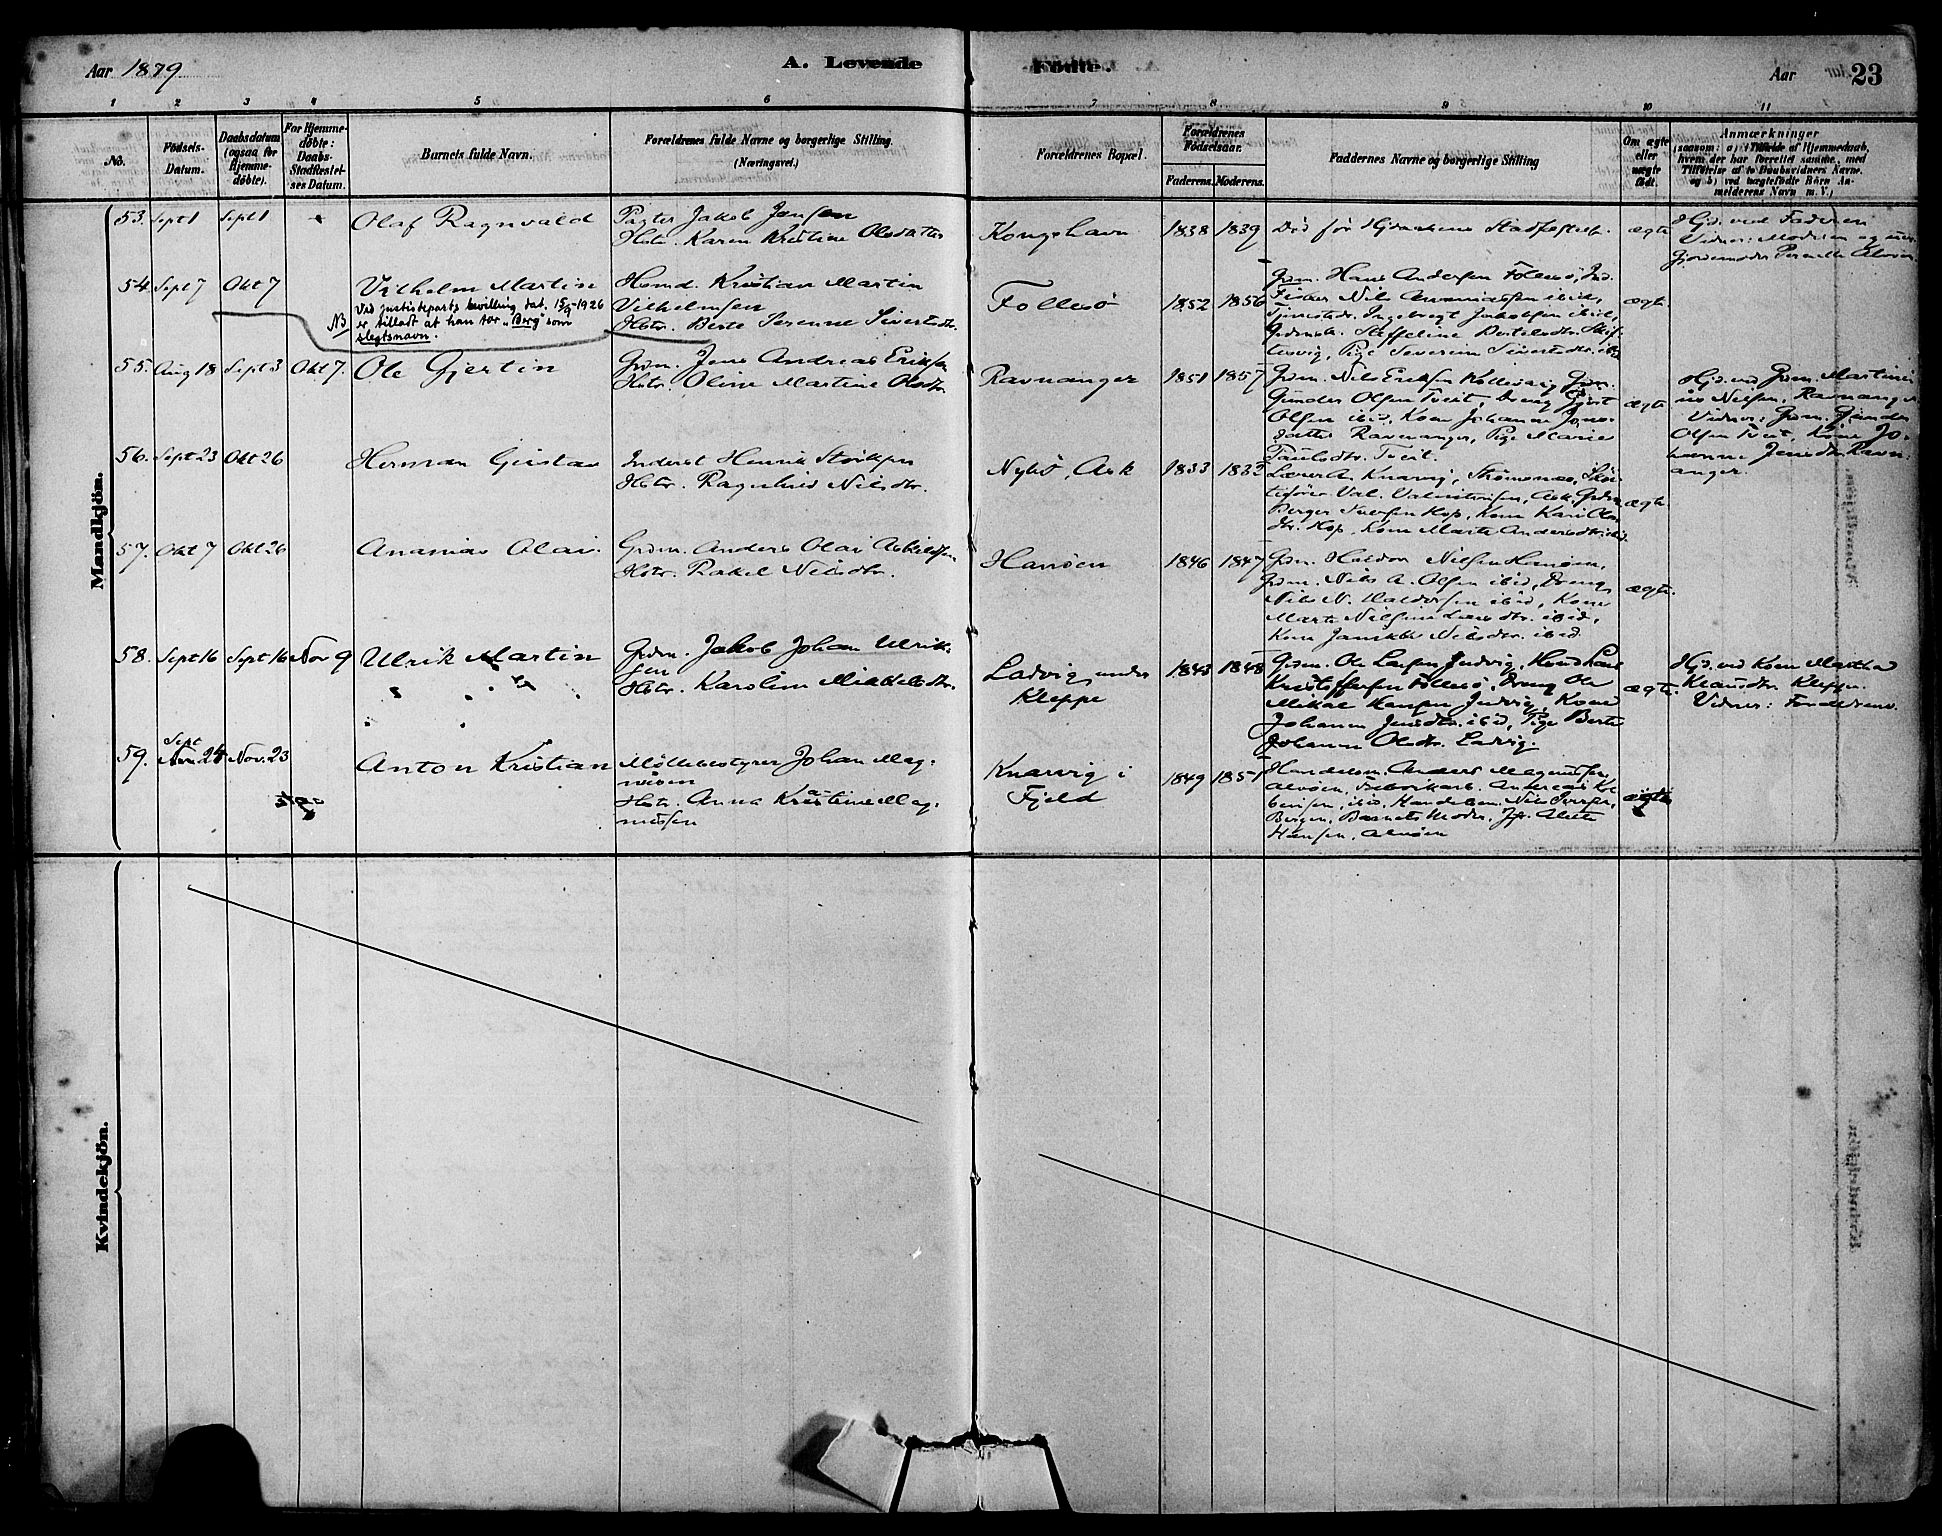 Aar 1879
A. Levende
Födte.
Aar
23
1 2 3 4 5 6 7 8 9 10 11
No.
Födsels-
Datum.
Daabsdatum
(ogsaa for
Hjemme-
döbte).
For Hjemme-
döbte:
Daabs-
Stadfæstel-
ses Datum.
Barnets fulde Navn.
Forældrenes fulde Navne og borgerlige Stilling.
(Næringsvei.)
Forældrenes Bopæl.
Forældrenes
Födselsaar.
Faderens. Moderens.
Faddernes Navne og borgerlige Stilling
Om ægte
eller
uægte
födt.
Anmærkninger
(saasom: a) i Tilfælde af Hjemmedaab,
hvem der har forrettet samme, med
Tilföielse af to Daabsvidners Navne.
og b) ved uægtefödte Börn An-
melderens Navn m. V.)
Mandkjön.
53. Sept 1 Sept 1
Olaf Ragnvald
Pagter Jakob Jensen
Hstr. Karen Kristine Olsdatter
Kongshavn 1838 1839
Död før Hjdaabens Stadfæstelse. ægte
Hjd. ved Faderen
Vidner: Moderen og
Gjordemoder Pernelle
54. Sept 7 Okt 7
Vilhelm Martin
Ved justisdeparts bevilling dat. 15/9-1926
NB er tilladt at han tar "Berg" som
slegtsnavn.
Kristian Martin
Vilhelmsen
Hstr. Berte Serenne Sivertsdtr.
Follesö 1852 1856
Grdm. Hans Andersen Follesö,
Fisker Nils Ananiassen ibid,
Ingebregt Jakobsen ibid,
Steffeline Bertelsdtr.
Pige Severine Sivertsdtr. ibid
ægte
55. Aug 18 Sept 3 Okt 7.
Ole Gjertin
Grdm. Jens Andreas Eriksen
Hstr. Oline Martine Olsdtr.
Ravnanger 1851 1857
Grdm. Nils Eriksen Kollevaag, Grdm.
Gunder Olsen Tveit, Dreng Gjert
Olsen ibid, Kone Johanne Jens-
datter Ravnanger, Pige Marie
Paulsdtr. Tveit.
ægte
Hjd. ved Grdm. Martini-
us Nilsen, Ravnanger
Vidner: Grdm. Gunder
Olsen Tveit, Kone Jo-
hanne Jensdtr. Ravn-
anger.
56. Sept 23 Okt 26
Herman Gustav
Inderst Henrik
Hstr. Ragnhild Nilsdtr.
Ask 1833
Lærer A. Knarvig, Strömsnes,
Val. Valentinsen, Ask,
Berger Hop, Kone Kari Ols-
dtr. Hop, Kone Marta Andersdtr. ibid
ægte.
57. Okt 7 Okt 26
Ananias Olai.
Grdm. Anders Olai
Hstr. Rakel Nilsdtr.
Hanöen 1846 1847
Grdm. Haldor Nilsen Hanöen,
Grdm. Nils A. Olsen ibid, Dreng
Nils N. Haldorsen ibid, Kone
Marte ibid,
Kone Nilsdtr. ibid
ægte.
58. Sept 16 Sept 16 Nov 9
Ulrik Martin
Grdm. Jakob Johan Ulrik-
sen
Hstr. Karoline Mikkelsdtr.
Ladvig under
Kleppe
1843 1848
Grdm. Ole Larsen Judvig,
Kristoffersen Follesö, Dreng Ole
Mikal Hansen Judvig, Kone
Johanne Jensdtr. ibid, Pige Berte
Johanne Olsdtr. Ladvig.
ægte.
Hjd. ved Kone Martha
Klausdtr. Kleppe.
Vidner: Forældrene.
59. Sept
Nov 24 Nov. 23
Anton Kristian
Möllebestyrer Johan Mag-
nusen
Hstr. Anna Kristine Mag-
nussen
Knarvig i
Fjeld
1849 1851
Handelsm. Anders Magnussen,
Alvöen, Fabrikarb. Andreas
ibid, Handelsm. Nils
Bergen, Barnets Moder,
Hansen, Alvöen
ægte
Kvindekjön.